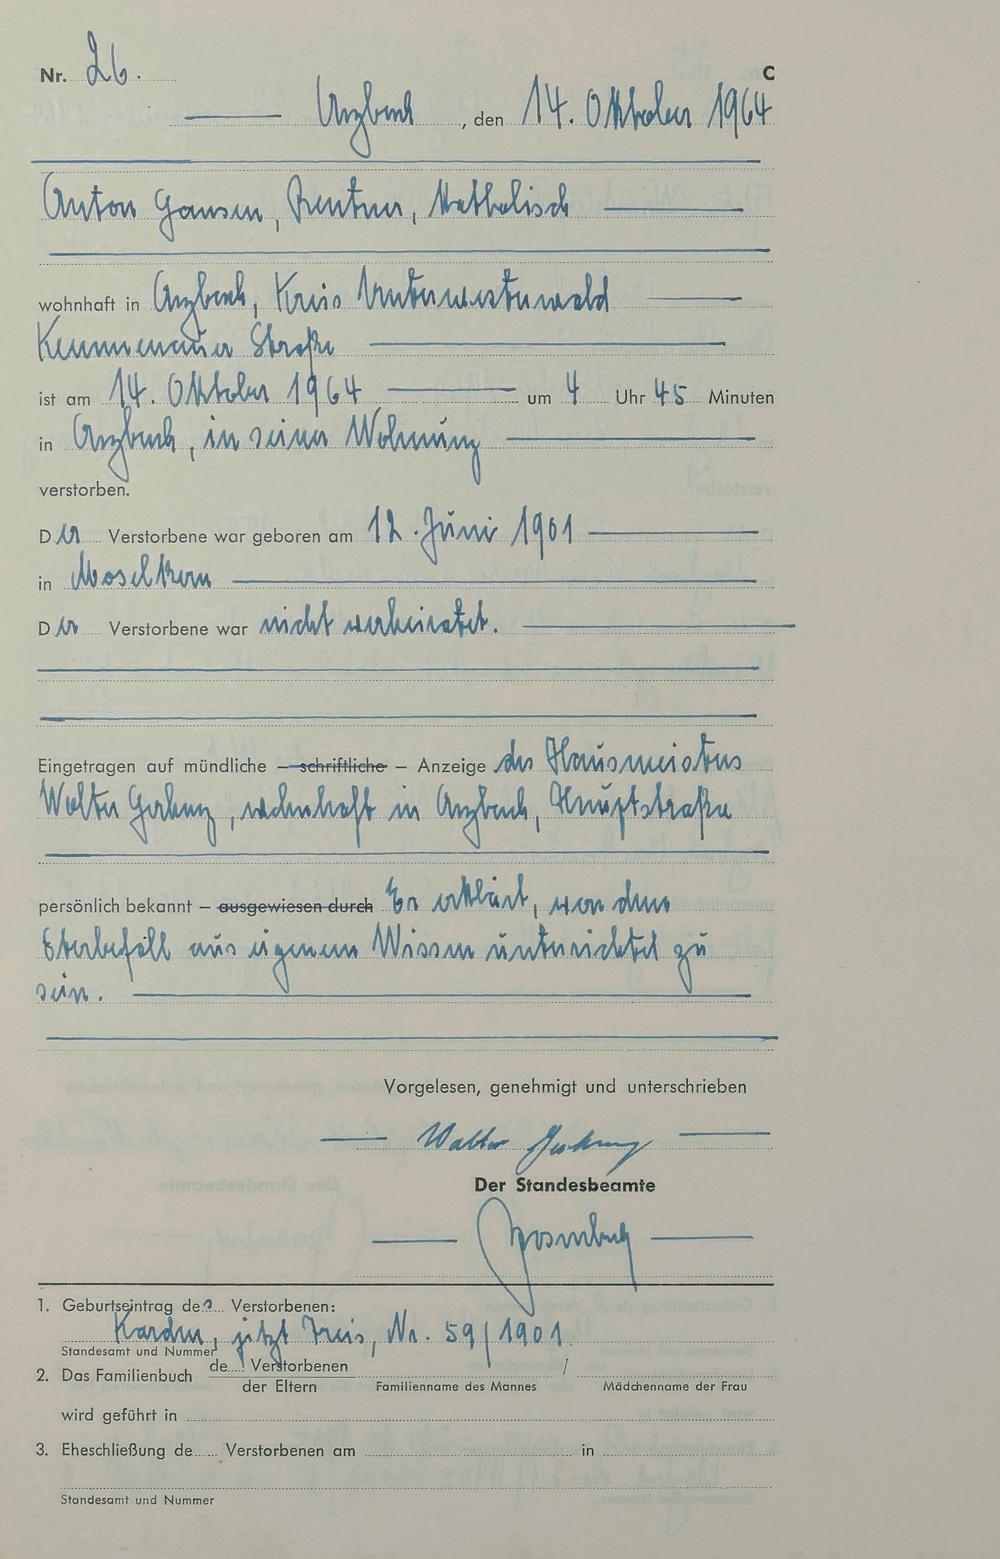 Nr. 26. C
Arzbach, den 14. Oktober 1964
Anton Gansen, Rentner, katholisch
wohnhaft in Arzbach, Kreis Unterwesterwald
Kemmenauer Straße
ist am 14. Oktober 1964 um 4 Uhr 45 Minuten
in Arzbach, in seiner Wohnung
verstorben.
Der Verstorbene war geboren am 12. Juni 1901
in Moselkern
Der Verstorbene war nicht verheiratet.
Eingetragen auf mündliche – schriftliche – Anzeige des Hausmeisters
Walter Gerharz, wohnhaft in Arzbach, Hauptstraße
persönlich bekannt – ausgewiesen durch Er erklärt, von dem
Sterbefall aus eigenem Wissen unterrichtet zu
sein.
Vorgelesen, genehmigt und unterschrieben
Walter
Der Standesbeamte
1. Geburtseintrag des Verstorbenen:
Karden, jetzt Treis, Nr. 59/1901.
Standesamt und Nummer
2. Das Familienbuch de Verstorbenen /
der Eltern Familienname des Mannes Mädchenname der Frau
wird geführt in
3. Eheschließung de Verstorbenen am in
Standesamt und Nummer